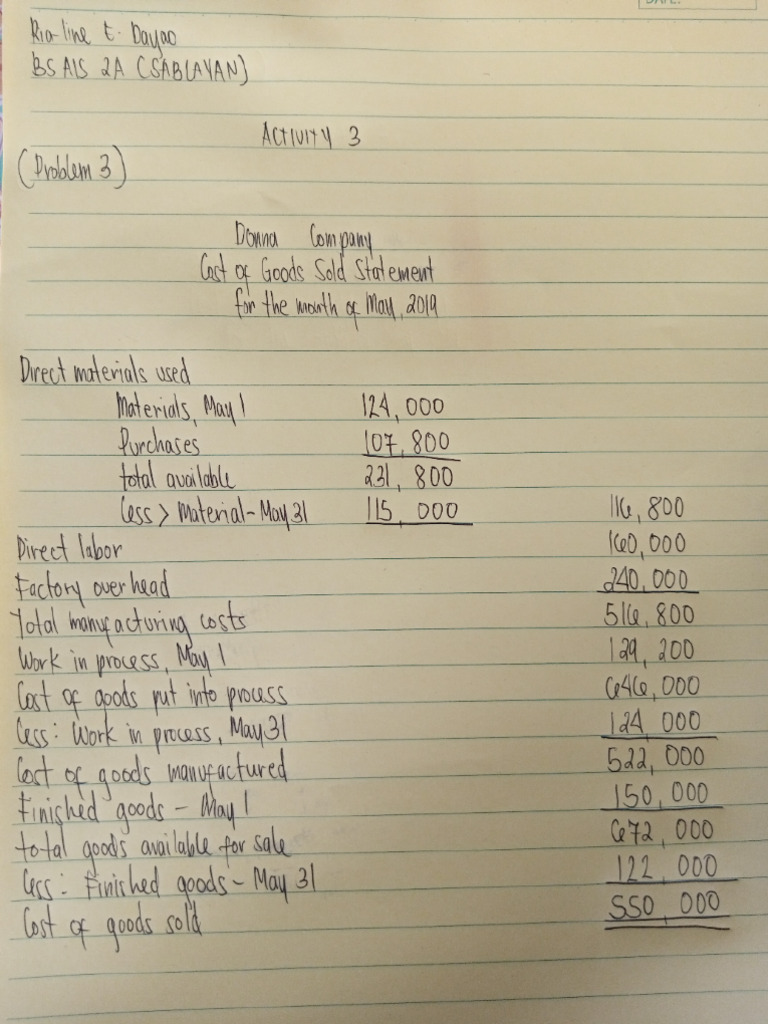 DATE:
Ria-line E. Dayao
BS AIS 2A (SABLAYAN)
ACTIVITY 3
(Problem 3)
Donna Company
Cost of Goods Sold Statement
for the month of May, 2019
Direct materials used
Materials, May 1 124,000
Purchases 107,800
total available 231,800
Less > Material - May 31 115,000 116,800
Direct labor 160,000
Factory overhead 240,000
Total manufacturing costs 516,800
Work in process, May 1 129,200
Cost of goods put into process 646,000
Less: Work in process, May 31 124,000
Cost of goods manufactured 522,000
Finished goods - May 1 150,000
total goods available for sale 672,000
Less: Finished goods - May 31 122,000
Cost of goods sold 550,000